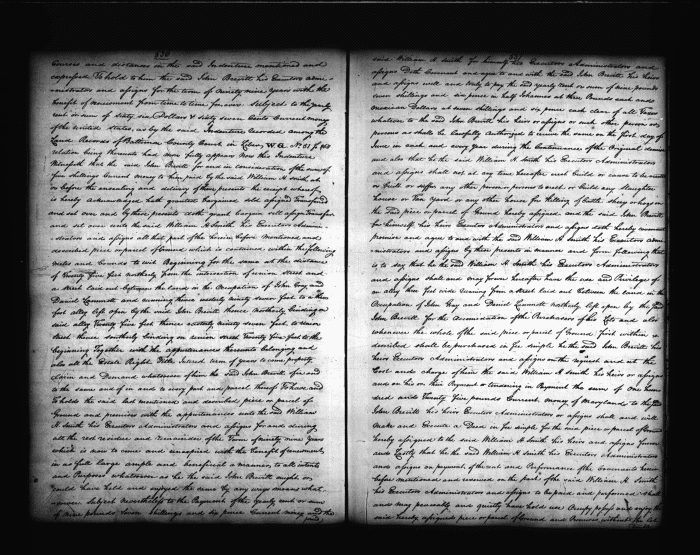 530
Courses and distances in the said Indenture mentioned and
expressed To hold to him the said John Brevitt his Executors admi-
nistrators and assigns for the term of Ninety nine years with the
benefit of renewment from time to time for ever Subject to the yearly
rent or sum of Sixty six Dollars & sixty seven Cents Current money
of the United States, as by the said Indenture recorded among the
Land Records of Baltimore County Court in Liber, W.G. No 61 fo
relation being thereunto had more fully appears Now this Indenture
Witnesseth that he the said John Brevitt for and in consideration of the sum of
five shillings Current money to him paid by the said William H Smith at
or before the ensealing and delivery of these presents the receipt whereof
is hereby acknowledged hath granted bargained sold assigned Transferred
and set over and by these presents doth grant bargain sell assign Transfer
and set over unto the said William H Smith his Executors Admini-
strators and assigns all that part of the before mentioned and
described piece or parcel of Ground which is contained within the following
Metes and bounds to wit Beginning for the same at the distance
of Twenty five feet northerly from the intersection of union Street and
a Street laid out between the lands in the Occupation of John Gray and
Daniel Lammott and running thence westerly ninety seven feet to a ten
foot alley left open by the said John Brevitt thence northerly binding on
said alley Twenty five feet thence easterly ninety seven feet to union
street thence southerly binding on union street Twenty five feet to the
beginning Together with the appurtenances thereunto belonging and
also all the Estate Right Title Interest term of years to come property
Claim and Demand whatsoever of him the said John Brevitt of in and
to the same and of in and to every part and parcel thereof To have and
To hold the said last mentioned and described piece or parcel of
Ground and premises with the appurtenances unto the said William
H Smith his Executors Administrators and assigns for and during
all the rest residue and remainder of the Term of ninety nine years
which is now to come and unexpired with the benefit of renewment
in as full large ample and beneficial a manner to all intents
and Purposes whatsoever as he the said John Brevitt might or
could have held and enjoyed the same by any ways means what
soever Subject nevertheless to the Payment of the yearly rent or sum
of nine pounds, seven shillings and six pence Current money and the
said William H Smith for himself his Executors Administrators and
assigns Doth Covenant and agree to and with the said John Brevitt his Heirs
and assigns well and truly to pay the said yearly Rent or sum of nine pounds
seven shillings and six pence in half Johannes at three Pounds each and
mexican Dollars at seven shillings and six pence each clear of all Taxes
whatsoever to the said John Brevitt his heirs or assigns or such other person or
persons as shall be lawfully authorized to receive the same on the first day of
June in each and every year during the Continuance of the Original demise
and also that he the said William H Smith his Executors Administrators
and assigns shall not at any time hereafter erect build or cause to be erected
or built or suffer any other person or persons to erect or build any Slaughter
house or Tan Yard or any other house for killing of Cattle sheep or hogs on
the said piece or parcel of Ground hereby assigned and the said John Brevitt
for himself, his heirs Executors Administrators and assigns doth hereby covenant
promise and agree to and with the said William H Smith his Executors admi-
nistrators and assigns by these presents in manner and form following that
is to say that he the said William H Smith his Executors Administrators
and assigns shall and may forever hereafter have the use and Privilege of
an alley ten feet wide leading from a street laid out between the lands in the
Occupation of John Gray and Daniel Lammott northerly left open by the said
John Brevitt for the accommodation of the Purchasers of his Lots and also
whenever the whole of the said piece or parcel of Ground first within
described shall be purchased in fee simple he the said John Brevitt his
heirs Executors Administrators and assigns on the request and at the
Cost and charge of him the said William H Smith his heirs or assigns
and on his or their Payment or tendering in Payment the sum of One hun-
dred and Twenty five pounds Current money of Maryland to the said
John Brevitt his heirs Executors Administrators or assigns shall and will
make and Execute a Deed in fee simple for the said piece or parcel of Ground
hereby assigned to the said William H Smith his heirs and assigns forever
and Lastly that he the said William H Smith his Executors Administrators
and assigns on payment of the rent and Performance of the Covenants herein
before mentioned and reserved on the part of the said William H Smith
his Executors Administrators and assigns to be paid and performed Shall
and may peaceably and quietly have hold use Occupy possess and enjoy the
said hereby assigned piece or parcel of Ground and Premises without the let